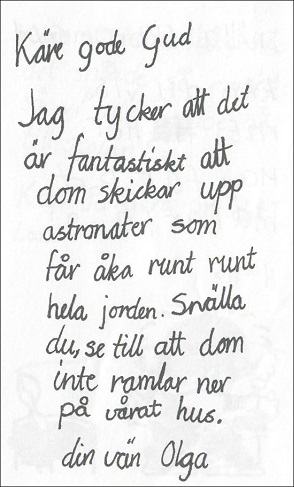 Käre gode Gud
Jag tycker att det
är fantastiskt att
dom skickar upp
astronater som
får åka runt runt
hela jorden. Snälla
du, se till att dom
inte ramlar ner
på vårat hus.
din vän Olga